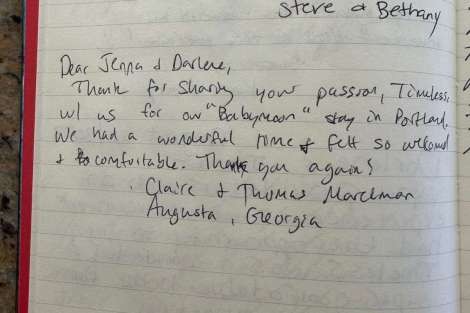 Steve & Bethany
Dear Jenna & Darlene,
Thank for sharing your passion, Timeless,
w/ us for our "Babymoon" stay in Portland.
We had a wonderful time & felt so welcomed
& comfortable. Thank you again!
Claire & Thomas
Augusta, Georgia